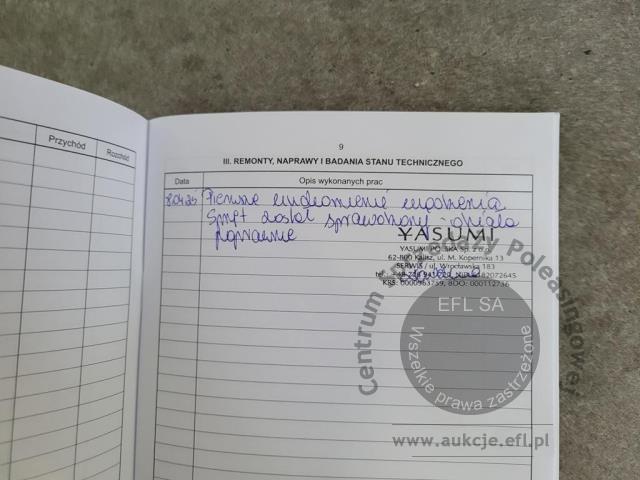 Przychód
Rozchód
9
III. REMONTY, NAPRAWY I BADANIA STANU TECHNICZNEGO
Data
Opis wykonanych prac
8.04.25 Pierwsze uruchomienie urządzenia
Sprzęt został sprawdzony - działa
poprawnie
YASUMI
YASUMI POLSKA Sp. z o.o.
62-800 Kalisz, ul. M. Kopernika 13
SERWIS / ul. Wrocławska 183
KRS: 0000963759, BDO: 000112736
Centrum Sprzedaży Poleasingowej
EFL SA
Wszelkie prawa zastrzeżone
www.aukcje.efl.pl